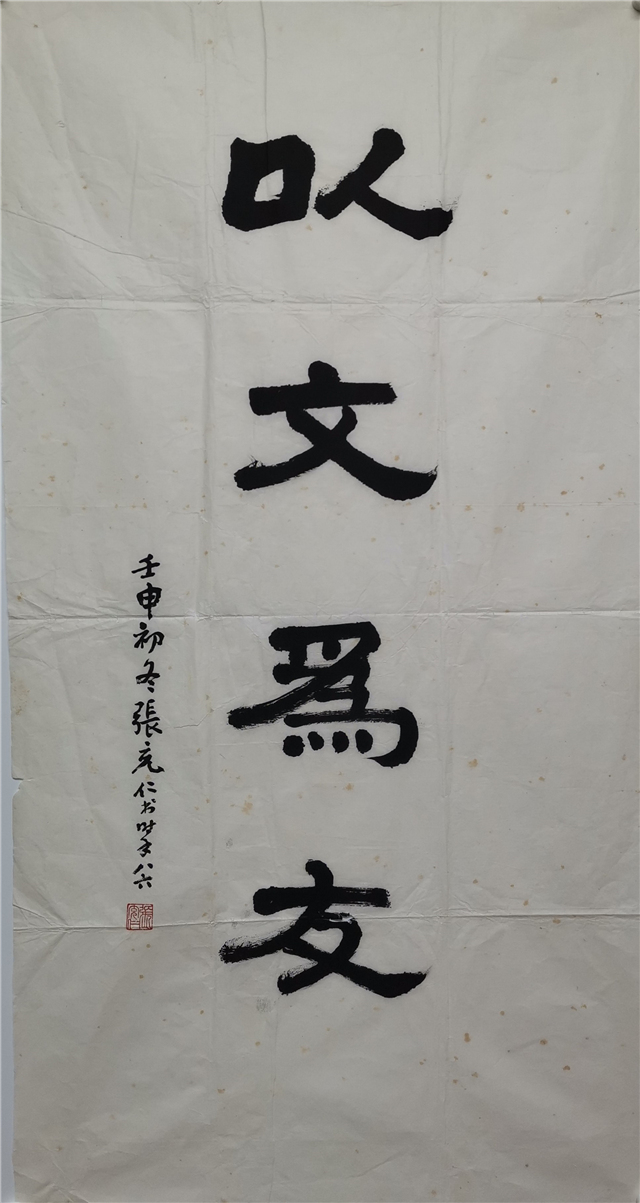 以文為友
壬申初冬張充仁书时年八六